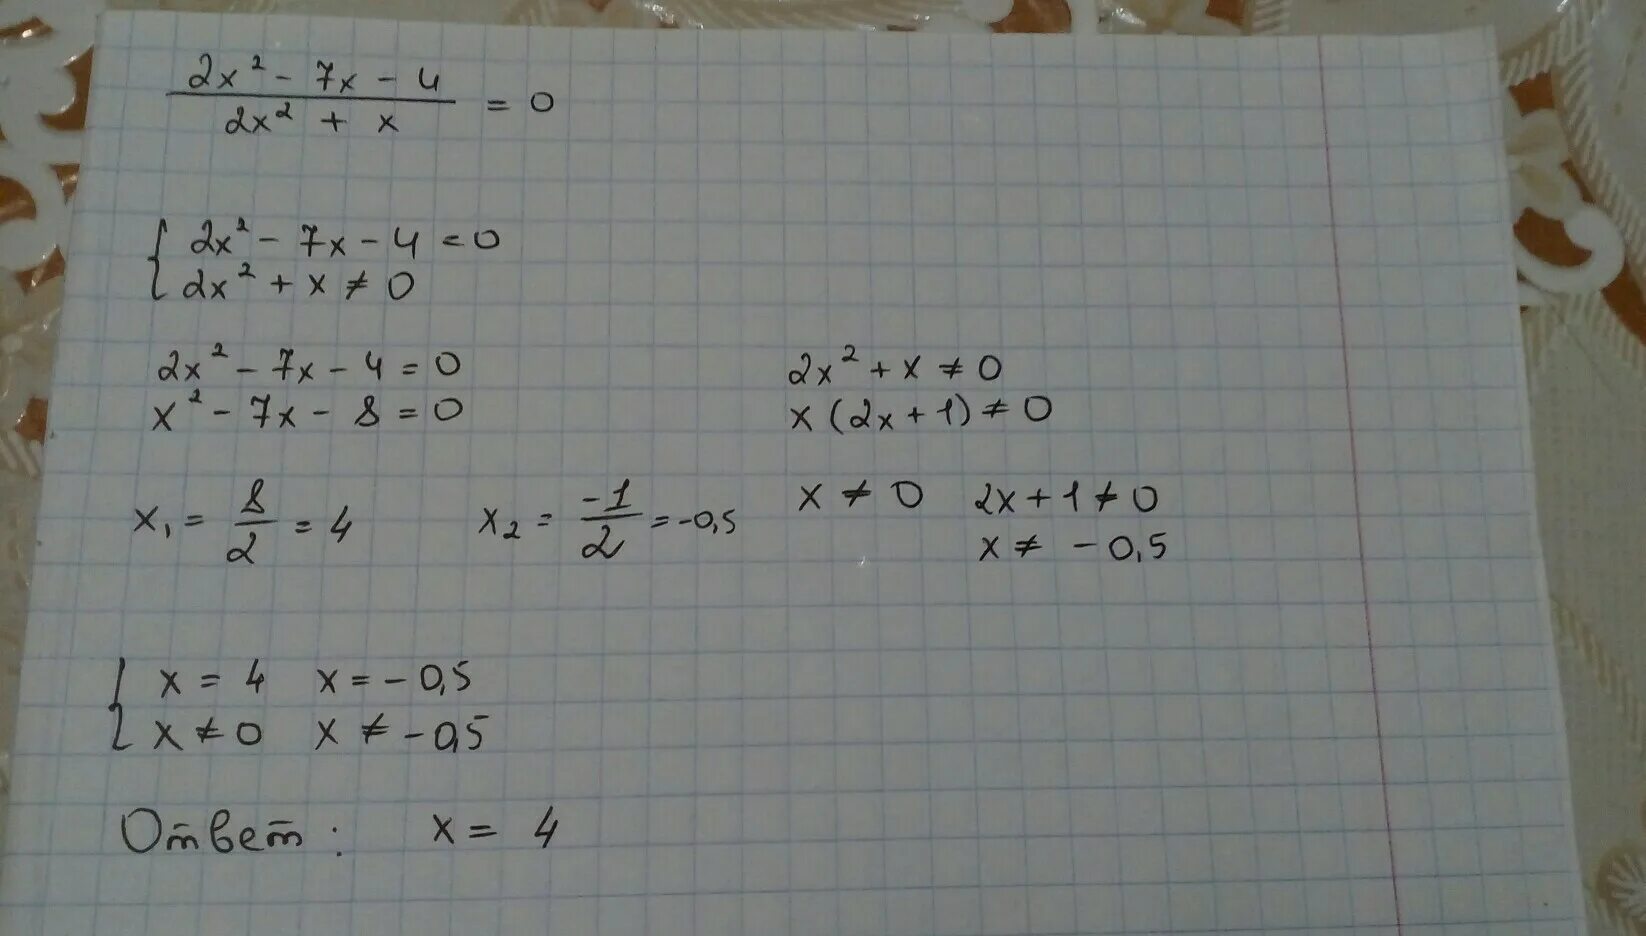 2x² - 7x - 4
2x² + x = 0
{ 2x² - 7x - 4 = 0
2x² + x ≠ 0
2x² - 7x - 4 = 0
x² - 7x - 8 = 0
x₁ = 8/2 = 4 x₂ = -1/2 = -0,5
2x² + x ≠ 0
x (2x + 1) ≠ 0
x ≠ 0 2x + 1 ≠ 0
x ≠ - 0,5
{ x = 4 x = - 0,5
x ≠ 0 x ≠ - 0,5
Ответ : x = 4